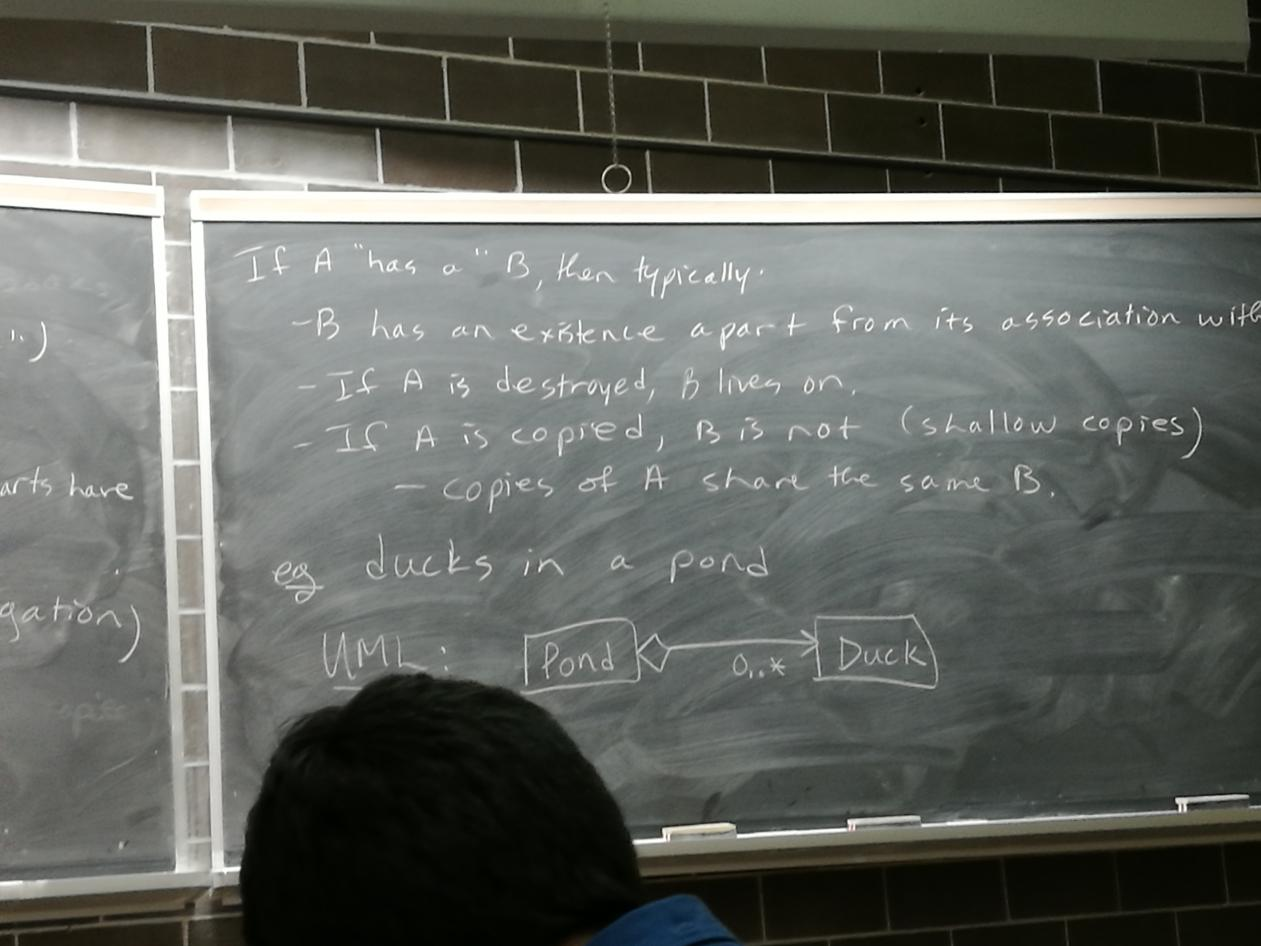 ..)
arts have
gation)
If A "has a" B, then typically.
-B has an existence apart from its association with
- If A is destroyed, B lives on.
- If A is copied, B is not (shallow copies)
- copies of A share the same B.
eg ducks in a pond
UML: Pond 0..* Duck